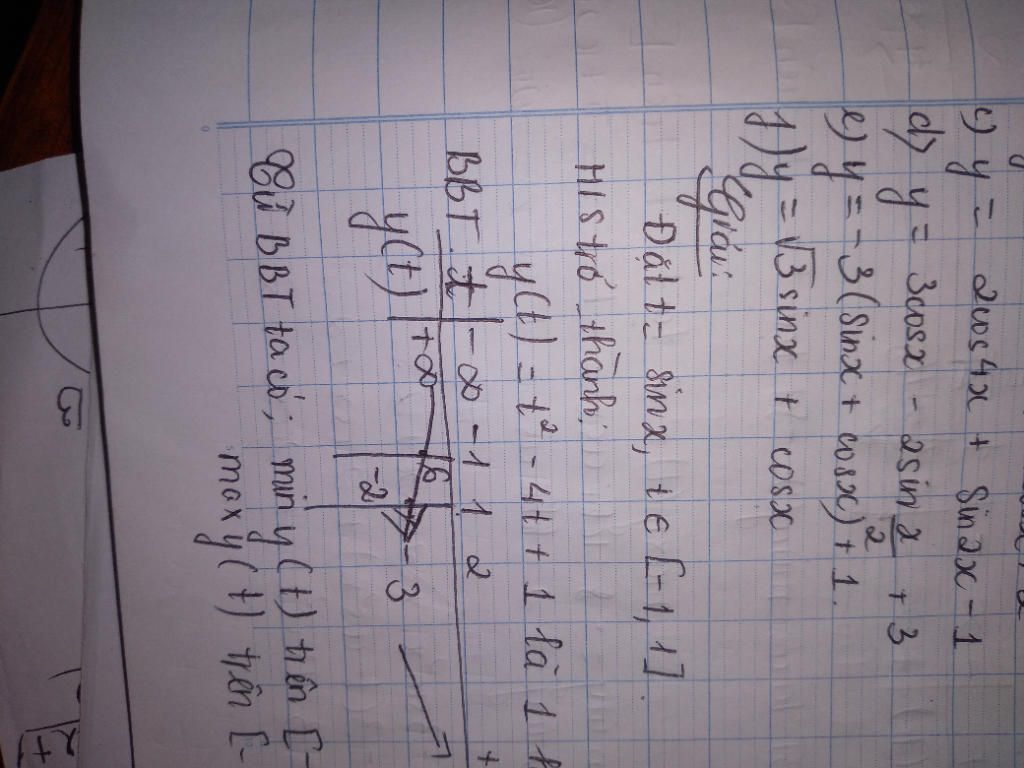 c) y = 2cos4x + sin2x - 1
d) y = 3cosx - 2sin x/2 + 3
e) y = -3(sinx + cosx) + 1.
f) y = √3 sinx + cosx
Giải:
Đặt t = sinx, t ∈ [-1, 1].
H/s trở thành:
y(t) = t² - 4t + 1 là 1
BBT t -∞ -1 1 2 +
y(t) +∞ 6 -2 -3
Từ BBT ta có: min y(t) trên [-
max y(t) trên [